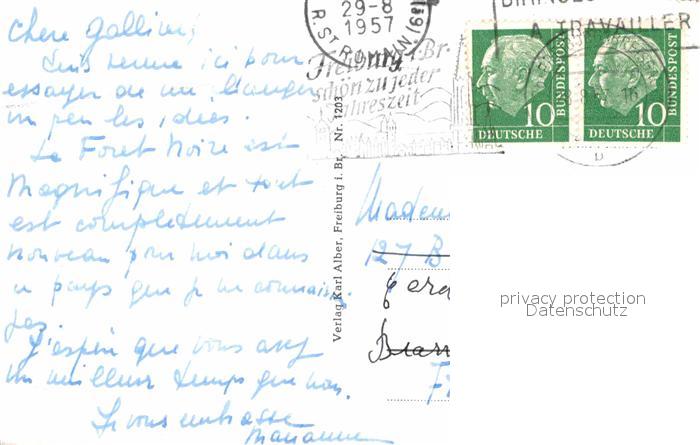 chere gallina,
Suis venue ici pour
essayer de me changer
un peu les idees.
La Foret Noire est
Magnifique et tout
est completement
nouveau pour moi dans
un pays que je ne connais
pas.
J'espère que vous avez
un meilleur temps que nous.
Je vous embrasse
Marianne
Verlag Karl Alber, Freiburg i. Br. Nr. 1203
29-8
1957
Freiburg i. Br.
schön zu jeder
Jahreszeit
A TRAVAILLER
10 DEUTSCHE BUNDESPOST
10 DEUTSCHE BUNDESPOST
Madem
127 B
privacy protection
Datenschutz